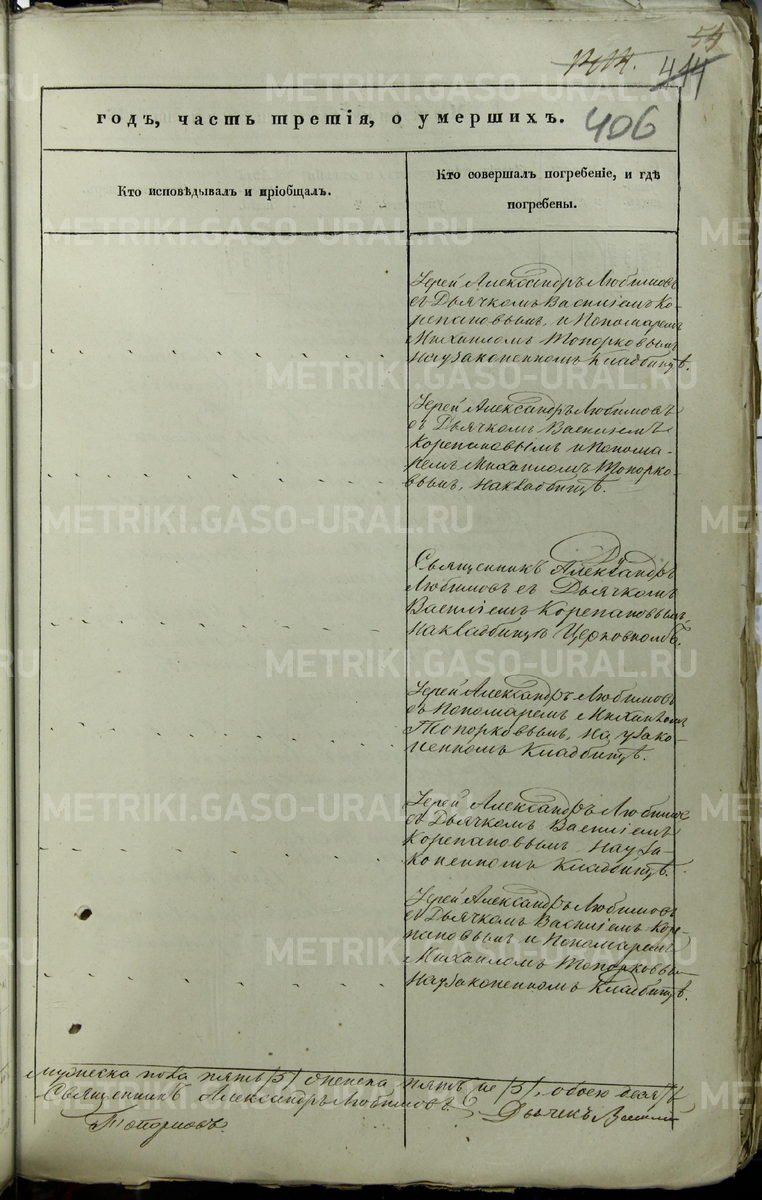 54
414
406
годъ, часть третія, о умершихъ.
Кто исповѣдывалъ и пріобщалъ.
Кто совершалъ погребеніе, и гдѣ
погребены.
Іерей Александръ Любимовъ
съ Дьячкомъ Василіемъ Ко-
репановымъ, и Пономаремъ
Михаиломъ Топорковымъ
На узаконенномъ Кладбищѣ.
Іерей Александръ Любимовъ
съ Дьячкомъ Василіемъ
Корепановымъ и Понома-
ремъ Михаиломъ Топорко-
вымъ, на кладбищѣ.
Священникъ Александръ
Любимовъ съ Дьячкомъ
Василіемъ Корепановымъ
На кладбищѣ Церковномъ.
Іерей Александръ Любимовъ
съ Пономаремъ Михаиломъ
Топорковымъ, на узако-
ненномъ Кладбищѣ.
Іерей Александръ Любимовъ
съ Дьячкомъ Василіемъ
Корепановымъ На уза-
коненномъ Кладбищѣ.
Іерей Александръ Любимовъ
съ Дьячкомъ Василіемъ Коре-
пановымъ и Пономаремъ
Михаиломъ Топорковым
На узаконенномъ Кладбищѣ.
Мужеска пола пять /5/ женска пять /5/, обоего
Священникъ Александръ Любимовъ Дьячекъ Васили
METRIKI.GASO-URAL.RU